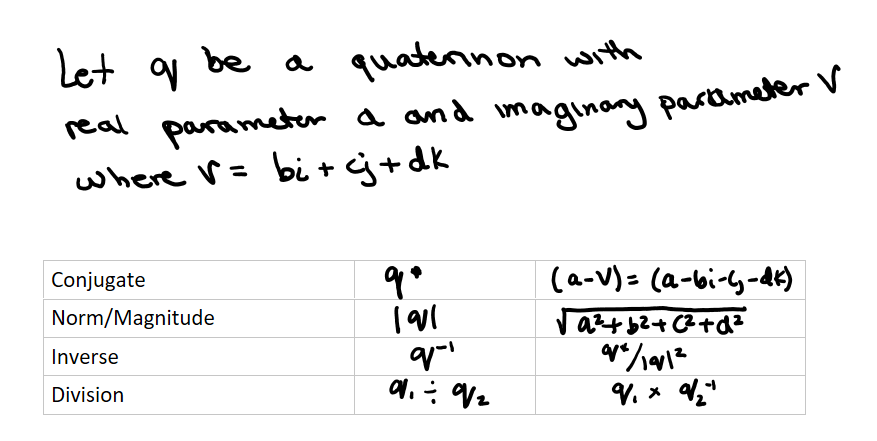 Let q be a quaternion with
real parameter a and imaginary parameter v
where v = bi + cj + dk
Conjugate q* (a-v) = (a-bi-cj-dk)
Norm/Magnitude |q| √a²+b²+c²+d²
Inverse q⁻¹ q*/|q|²
Division q₁ ÷ q₂ q₁ × q₂⁻¹